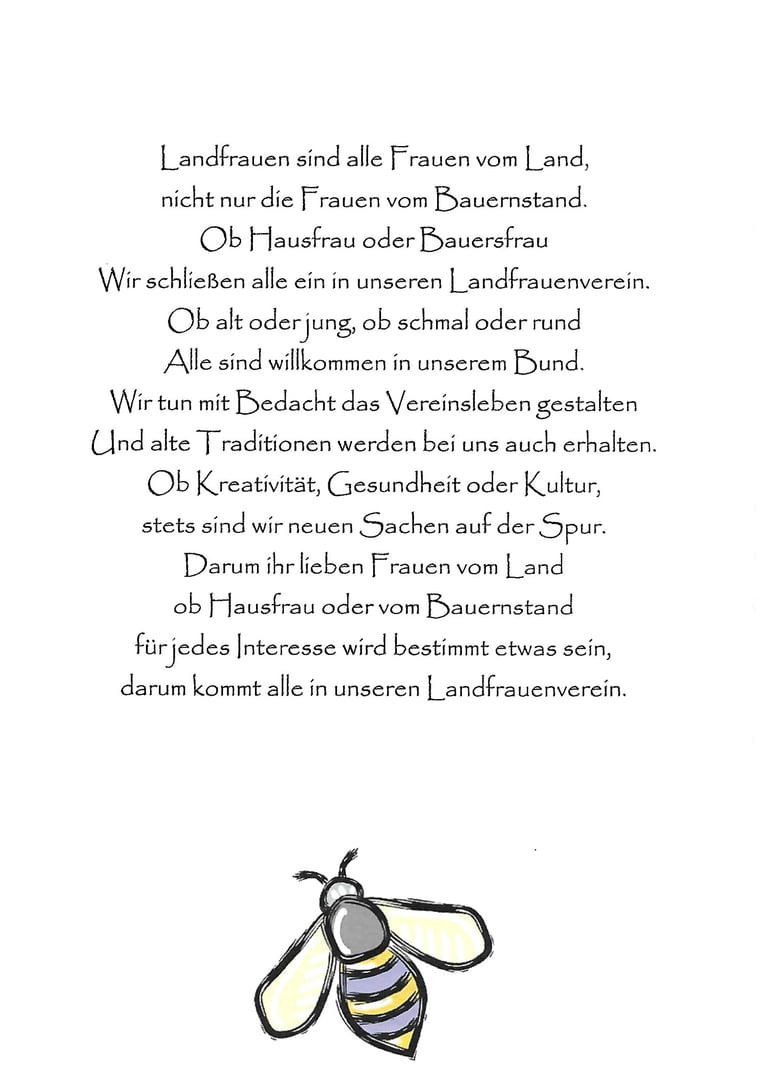 Landfrauen sind alle Frauen vom Land,
nicht nur die Frauen vom Bauernstand.
Ob Hausfrau oder Bauersfrau
Wir schließen alle ein in unseren Landfrauenverein.
Ob alt oder jung, ob schmal oder rund
Alle sind willkommen in unserem Bund.
Wir tun mit Bedacht das Vereinsleben gestalten
Und alte Traditionen werden bei uns auch erhalten.
Ob Kreativität, Gesundheit oder Kultur,
stets sind wir neuen Sachen auf der Spur.
Darum ihr lieben Frauen vom Land
ob Hausfrau oder vom Bauernstand
für jedes Interesse wird bestimmt etwas sein,
darum kommt alle in unseren Landfrauenverein.